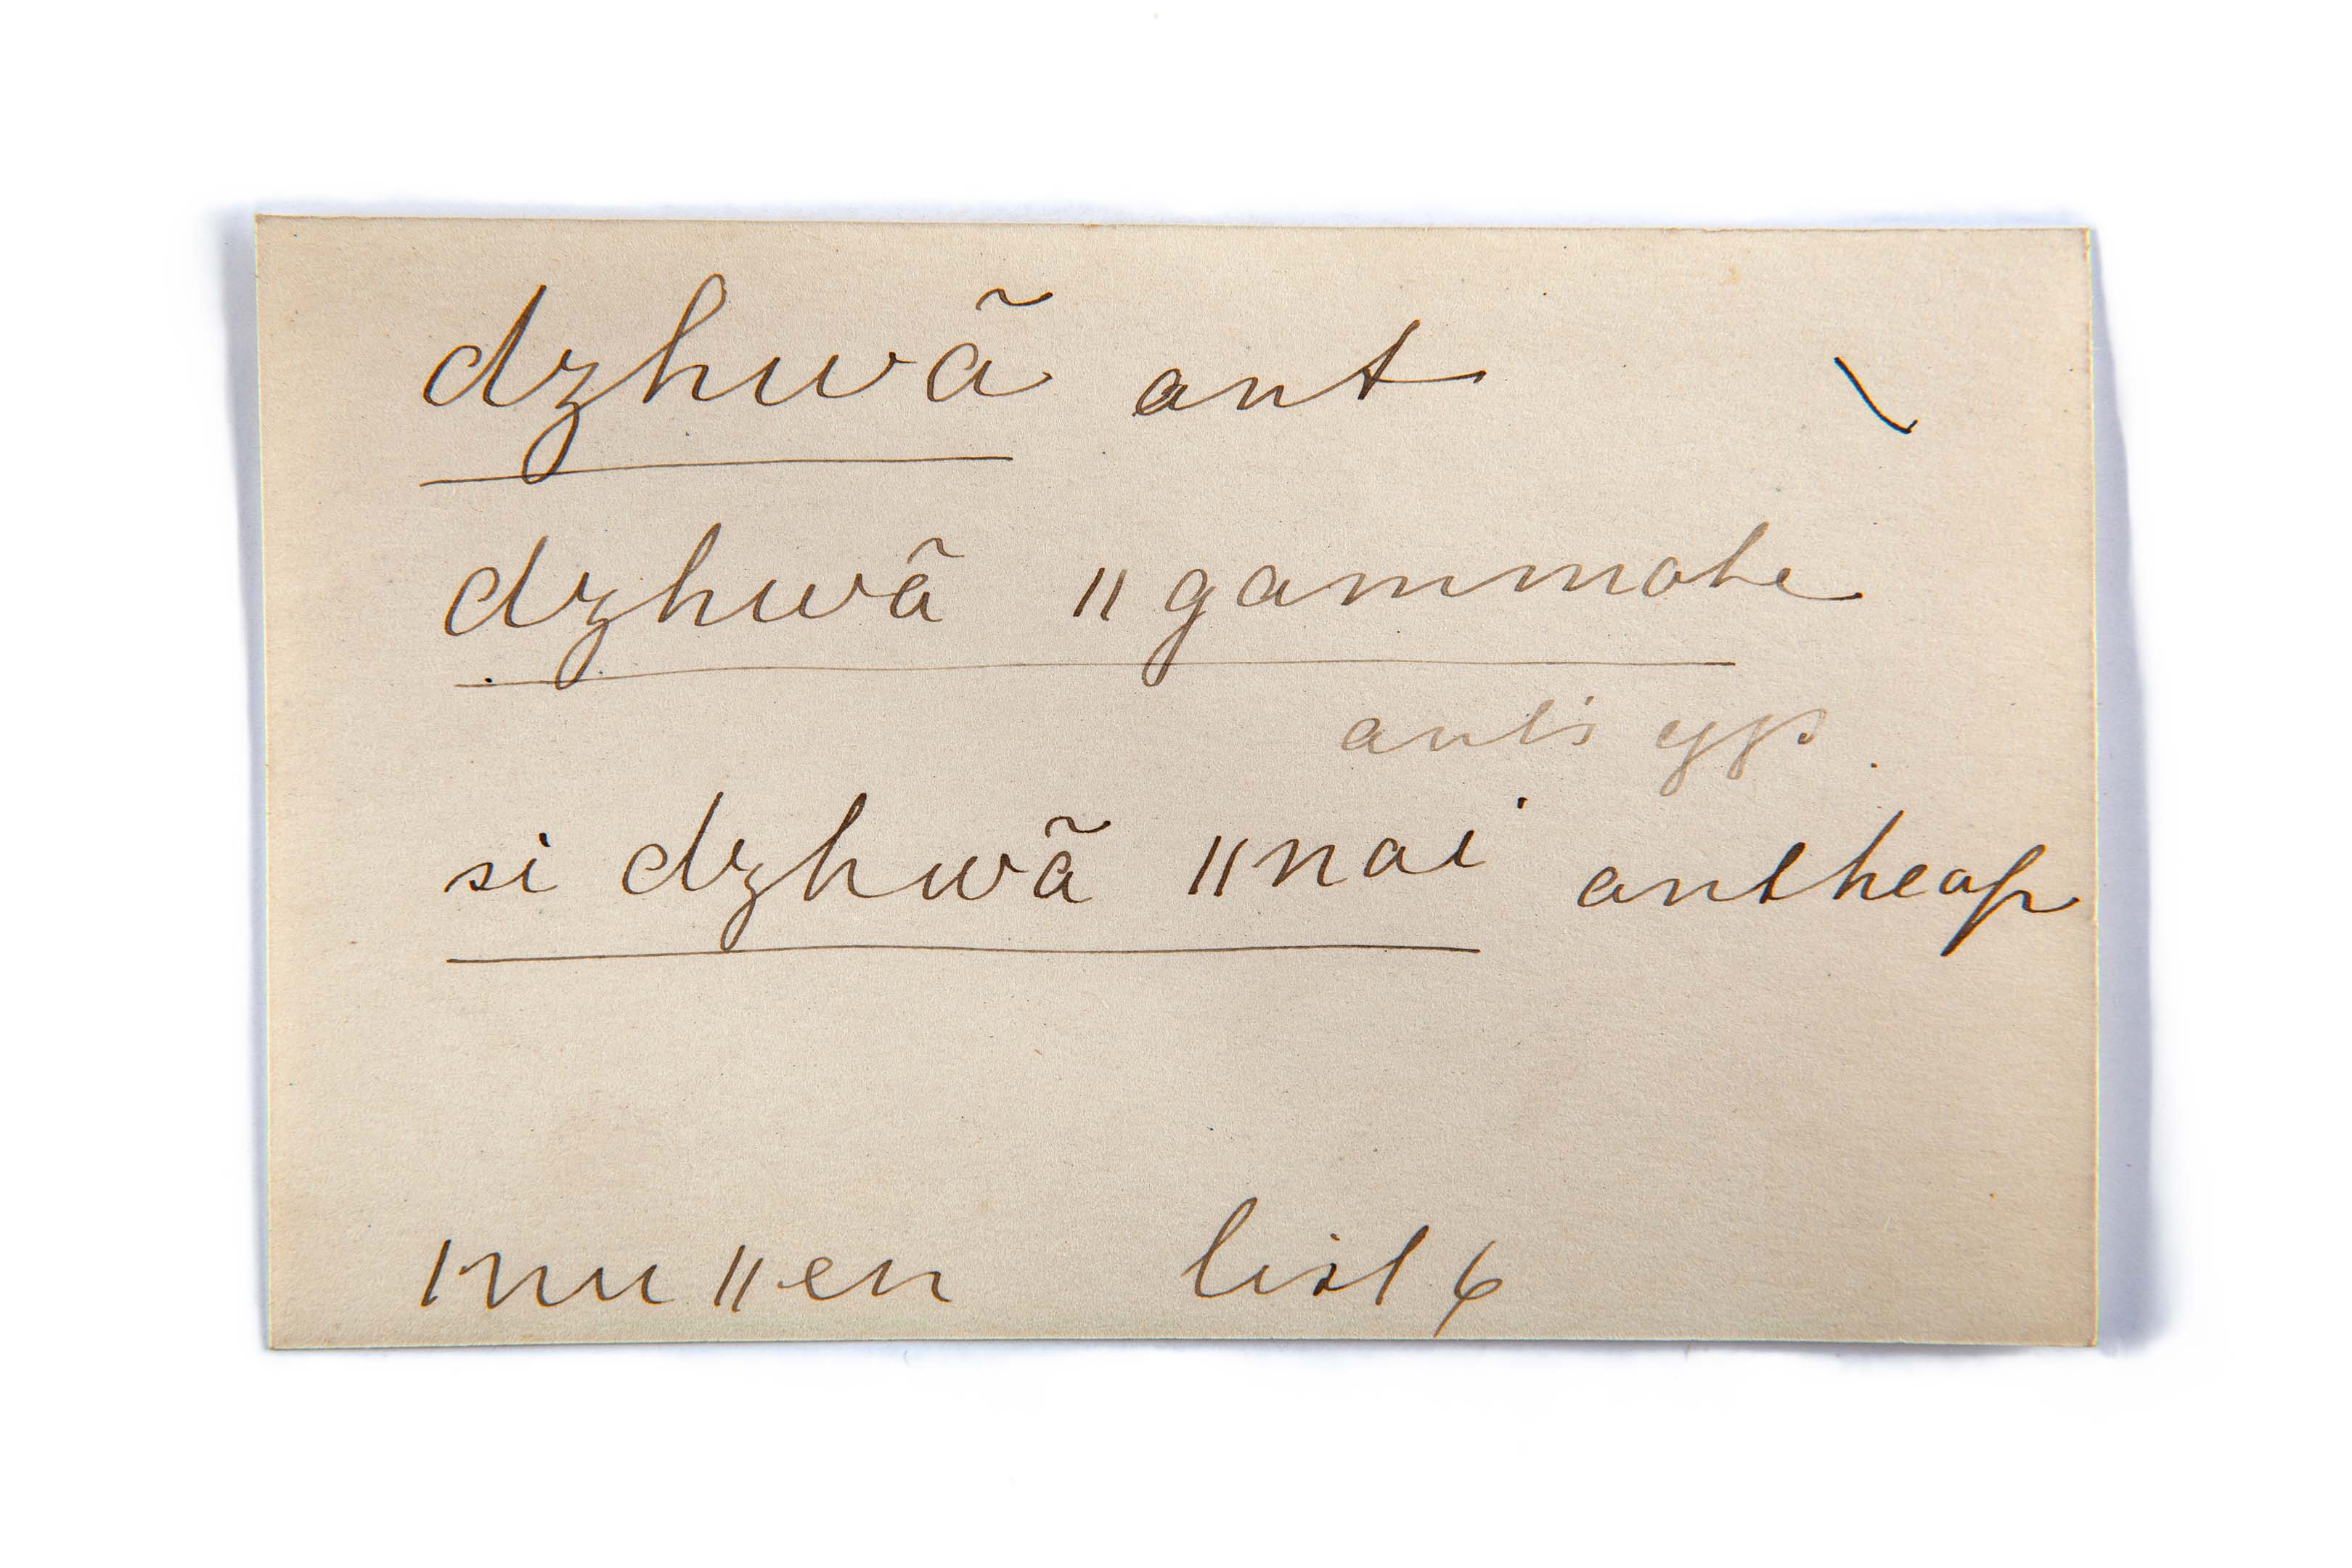 dzhwã ant \
dzhwã ǁgammohe
ants eggs.
si dzhwã ǁnai antheap
ǀnuǁen list 6